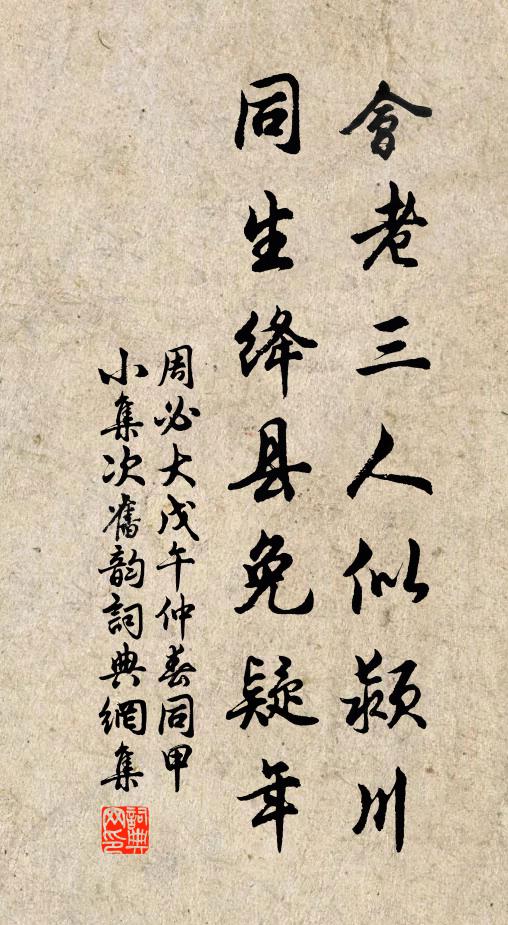 會老三人似潁川
同生绛县免疑年
周必大戊午仲春同甲
小集次舊韵詞典網集
詞典
网印